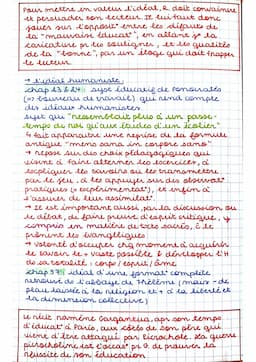 Pour mettre en valeur l'idéal, R. doit convaincre
et persuader son lecteur. Il lui faut donc
jouer sur l'opposit° entre les défauts de
la "mauvaise éducat°", en allant jq la
caricature pr les souligner, et les qualités
de la "bonne", par un éloge qui doit frapper
le lecteur.
→ L'idéal humaniste:
chap 23 & 24: syst éducatif de Ponocratès
(=> bourreau de travail) qui rend compte
des idéaux humanistes
syst qui "ressemblait plus à un passe-
temps du roi qu'aux études d'un écolier"
↳ fait apparaître une reprise de la formule
antique "mens sana in corpore sano"
→ repose sur des choix pédagogiques qui
visent à faire alterner les exercices, à
expliquer les savoirs ou les transmettre
par le jeu, à les appuyer sur des observat°
pratiques (= expérimentat°), et enfin à
s'assurer de leur assimilat°.
→ Il est important aussi, par la discussion ou
le débat, de faire preuve d'esprit critique, y
compris en matière de txts sacrés, ce que
prônent les évangéliques
→ volonté d'occuper chq moment à acquérir
le savoir le + vaste possible & développer l'H
ds sa totalité : corps / esprit / âme
chap 57: idéal d'une format° complète
renouvelé de l'abbaye de Thélème (moins de
place laissée à la religion et + à la liberté et
la dimension collective)
Le récit ramène Gargantua, apr son temps
d'éducat° à Paris, aux côtés de son père qui
vient d'être attaqué par Picrochole. La guerre
picrocholine est l'occas° pr R. de prouver la
réussite de son éducation